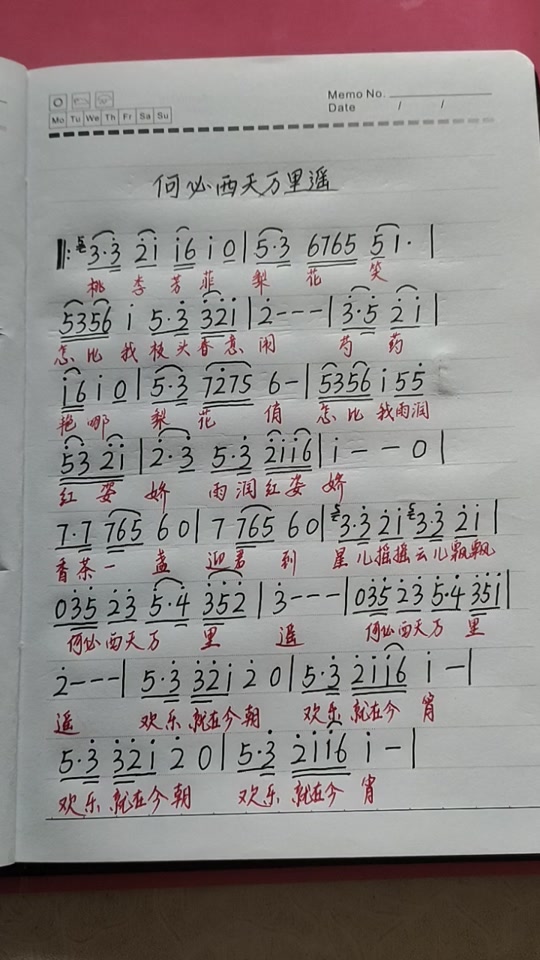 Memo No.
Date / /
Mo Tu We Th Fr Sa Su
何必西天万里遥
𝄆 5 3·3 2i i6 i 0 | 5·3 6765 5 1· |
桃 李 芳 菲 梨 花 笑
5356 i 5·3 32i | 2--- | 3·5 2 i |
怎比 我枝头春意 闹 芍 药
i6 i 0 | 5·3 7275 6- | 5356 i 55
艳 哪 梨 花 俏 怎比 我雨润
53 2i | 2·3 5·3 2ii6 | i - - 0 |
红 姿 娇 雨润红姿 娇
7·7 765 6 0 | 7 765 6 0 | 3·3 2i 3·3 2i |
香茶一 盏 迎君 到 星儿摇摇云儿飘飘
035 23 5·4 352 | 3--- | 035 23 5·4 35i |
何必西天万 里 遥 何必西天万 里
2--- | 5·3 32i 2 0 | 5·3 2ii6 i - |
遥 欢乐就在今朝 欢乐就在今 宵
5·3 32i 2 0 | 5·3 2ii6 i - |
欢乐就在今朝 欢乐就在今 宵